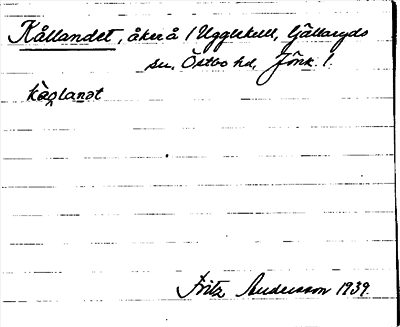 Kållandet, åker å / Ugglekull, Gällaryds
sn. Östbo hd, Jönk. l.
Fritz Andersson 1939.